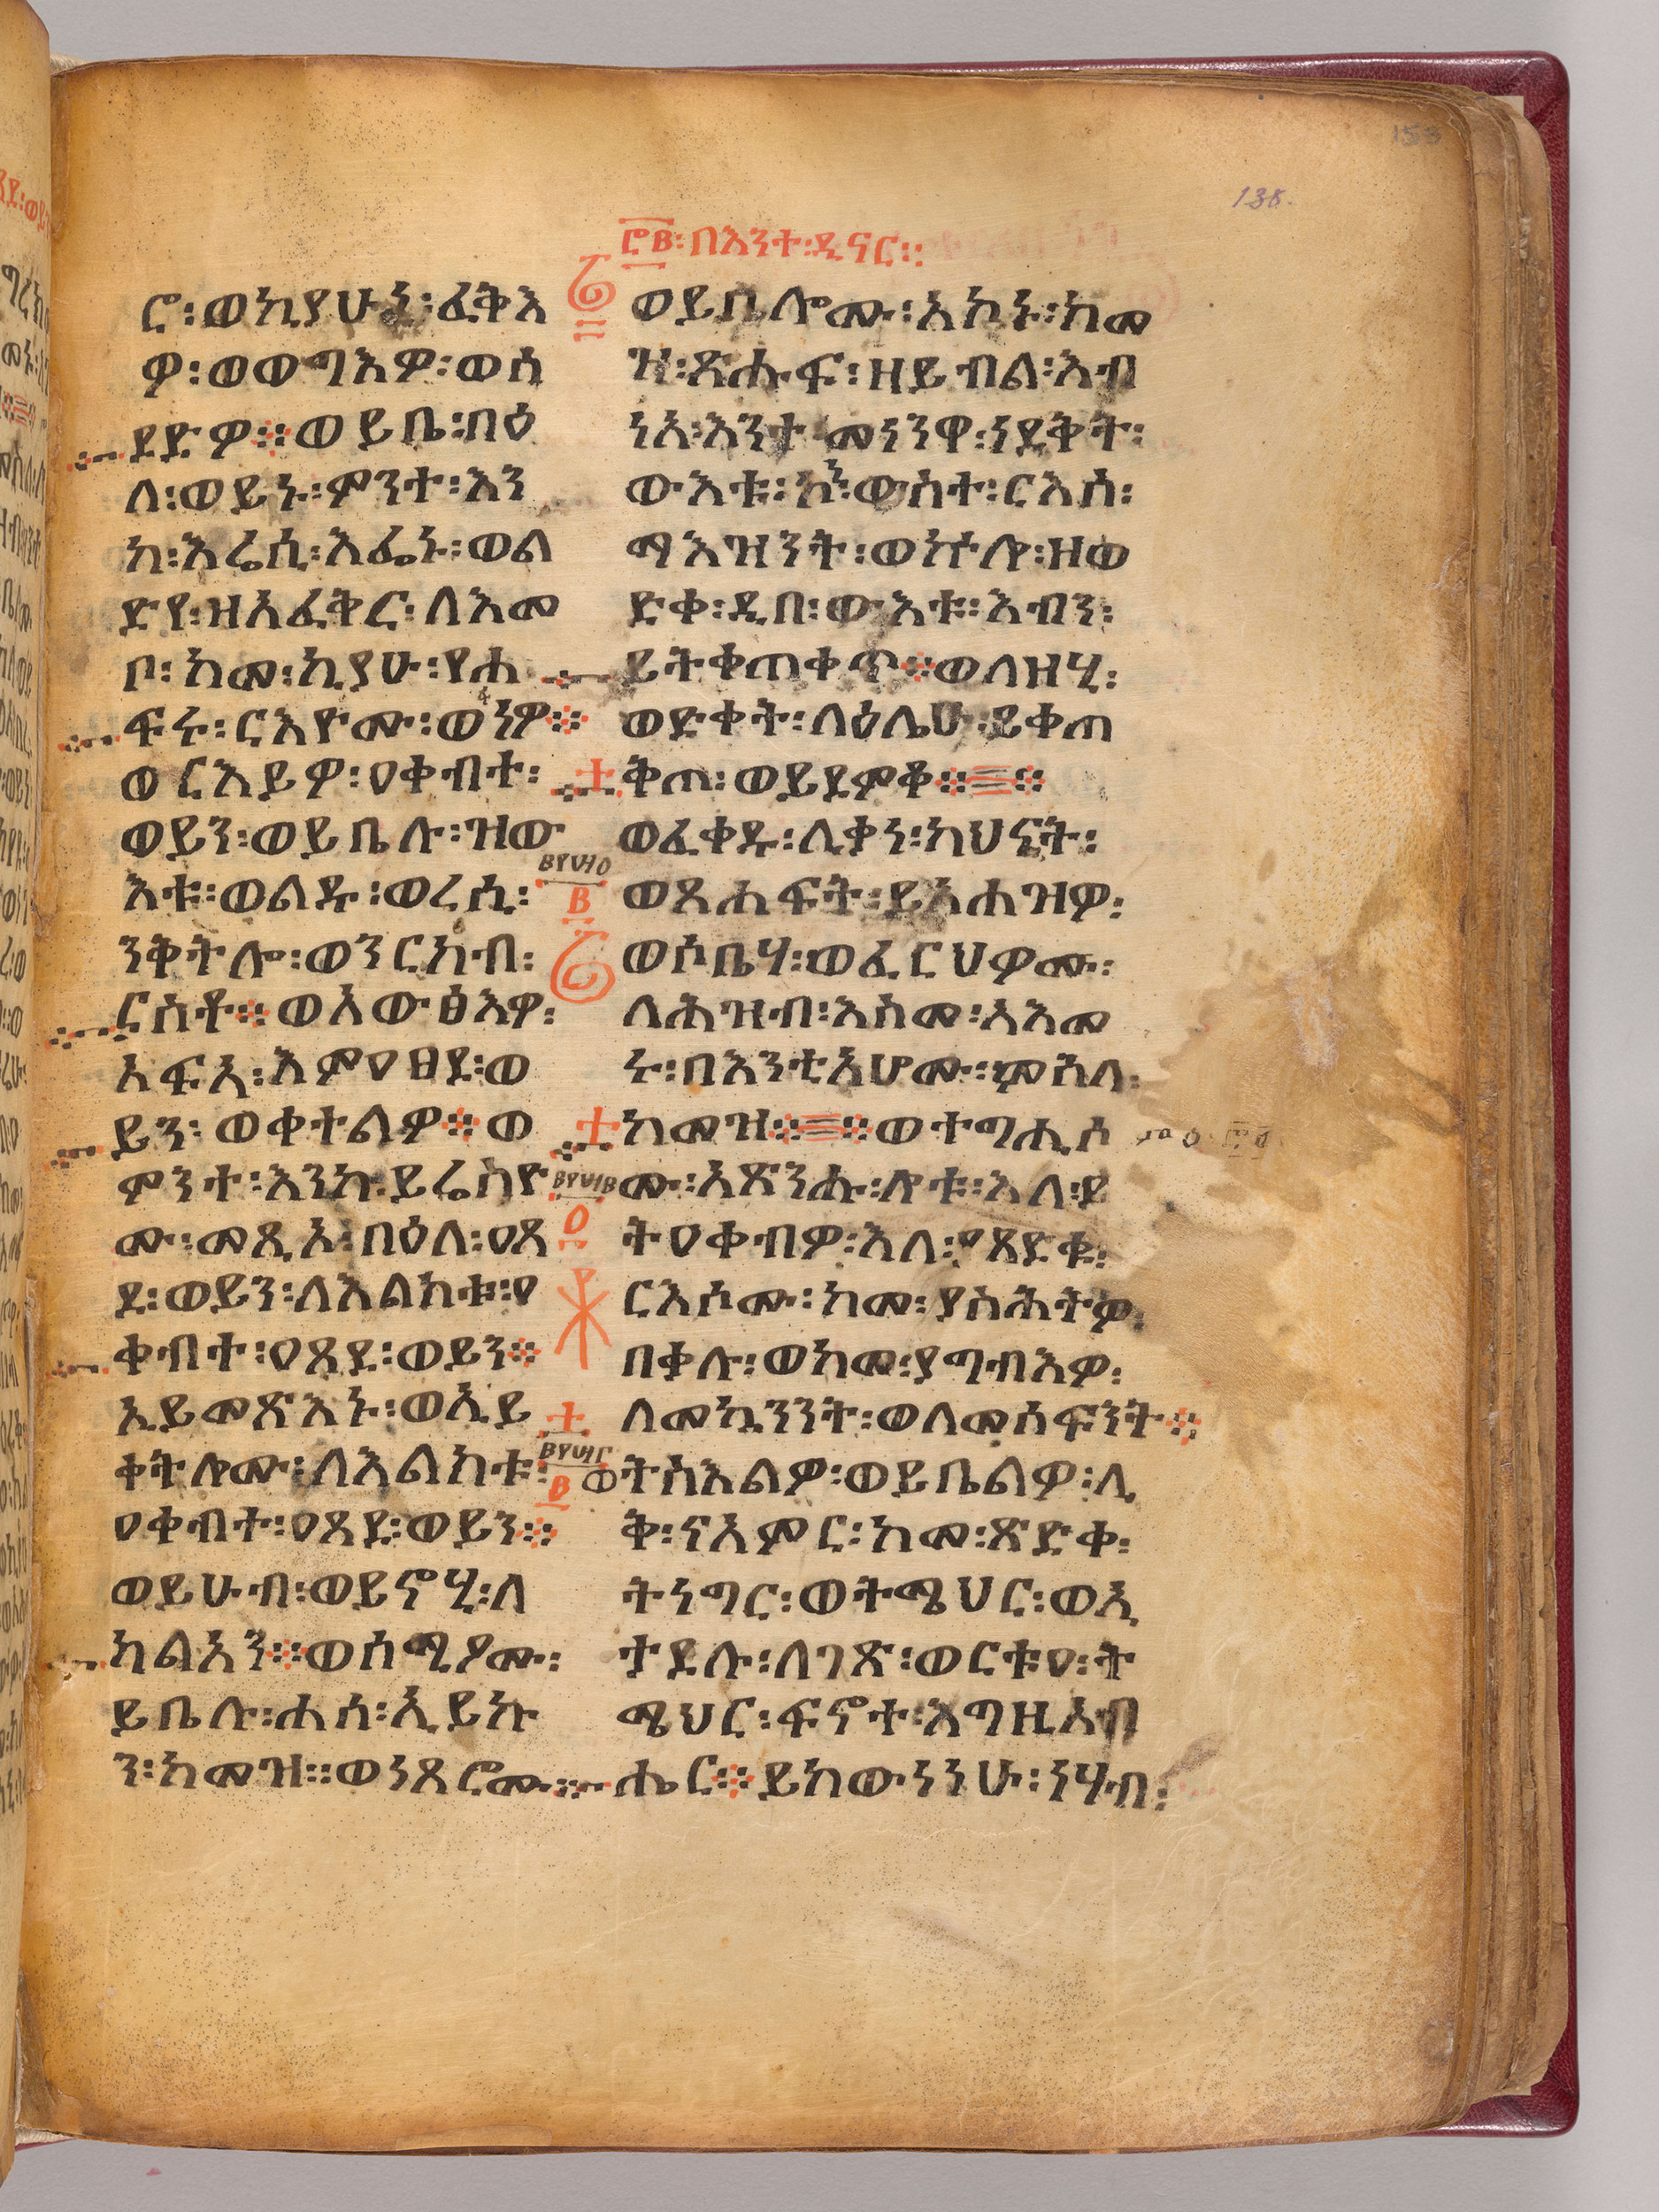 153
138.
፸፪፡በእንተ፡ዲናር፡፡
ሮ፡ወኪያሁኒ፡ፈቅእ
ዎ፡ወወግእዎ፡ወሰ
ደድዎ፨ወይቤ፡በዕ
ለ፡ወይኑ፡ምንተ፡እን
ከ፡እሬሲ፡እፌኑ፡ወል
ድየ፡ዝአፈቅር፡ለእመ
ቦ፡ከመ፡ኪያሁ፡የሐ
ፍሩ፡ርእዮሙ፡ወፈነዎ፨
ወርእይዎ፡ዐቀብተ፡
ወይን፡ወይቤሉ፡ዝው
እቱ፡ወልዱ፡ወረሲ፡
ንቅትሎ፡ወንርከብ፡
ርስቶ፨ወአውፅእዎ፡
አፍአ፡እምዐፀደ፡ወ
ይን፡ወቀተልዎ፨ወ
ምንተ፡እንከ፡ይሬስዮ
ሙ፡መጺአ፡በዕለ፡ዐጸ
ደ፡ወይን፡ለእልክቱ፡ዐ
ቀብተ፡ዐጸደ፡ወይን፨
ኢይመጽእኑ፡ወኢይ
ቀትሎሙ፡ለእልክቱ፡
ዐቀብተ፡ዐጸደ፡ወይን፨
ወይሁብ፡ወይኖሂ፡ለ
ካልአን፨ወሰሚዖሙ፡
ይቤሉ፡ሐሰ፡ኢይኩ
ን፡ከመዝ፡፡ወነጸሮሙ
ወይቤሎሙ፡አኮኑ፡ከመ
ዝ፡ጽሑፍ፡ዘይብል፡እብ
ነ፡እንተ፡መነንዋ፡ነደቅት፡
ውእቱ፡ኮነ፡ውስተ፡ርእሰ፡
ማእዝንት፡ወኵሎ፡ዘወ
ድቀ፡ዲበ፡ውእቱ፡እብን፡
ይትቀጠቀጥ፨ወለዘሂ፡
ወድቀት፡ለዕሌሁ፡ይቀጠ
ቅጦ፡ወይደምቆ፨፨
ወፈቀዱ፡ሊቃነ፡ካህናት፡
ወጸሐፍት፡ይእሐዝዎ፡
ወሶቤሃ፡ወፈርህዎሙ፡
ለሕዝብ፡እስመ፡አእመ
ሩ፡በእንቲአሆሙ፡መሰለ፡
ከመዝ፨፨ወተግሒሶ
ሙ፡አጽንሑ፡ሎቱ፡እለ፡ይ
ትዐቀብዎ፡እለ፡ያጸድቁ፡
ርእሶሙ፡ከመ፡ያስሕትዎ፡
በቃሉ፡ወከመ፡ያግብእዎ፡
ለመኳንንት፡ወለመሰፍንት፨
ወትስእልዎ፡ወይቤልዎ፡ሊ
ቅ፡ናአምር፡ከመ፡ጽድቀ፡
ትነግር፡ወትሜህር፡ወኢ
ታደሉ፡ለገጽ፡ወርቱዐ፡ት
ሜህር፡ፍኖተ፡እግዚአብ
ሔር፨ይከውነንሁ፡ነሃብ፡